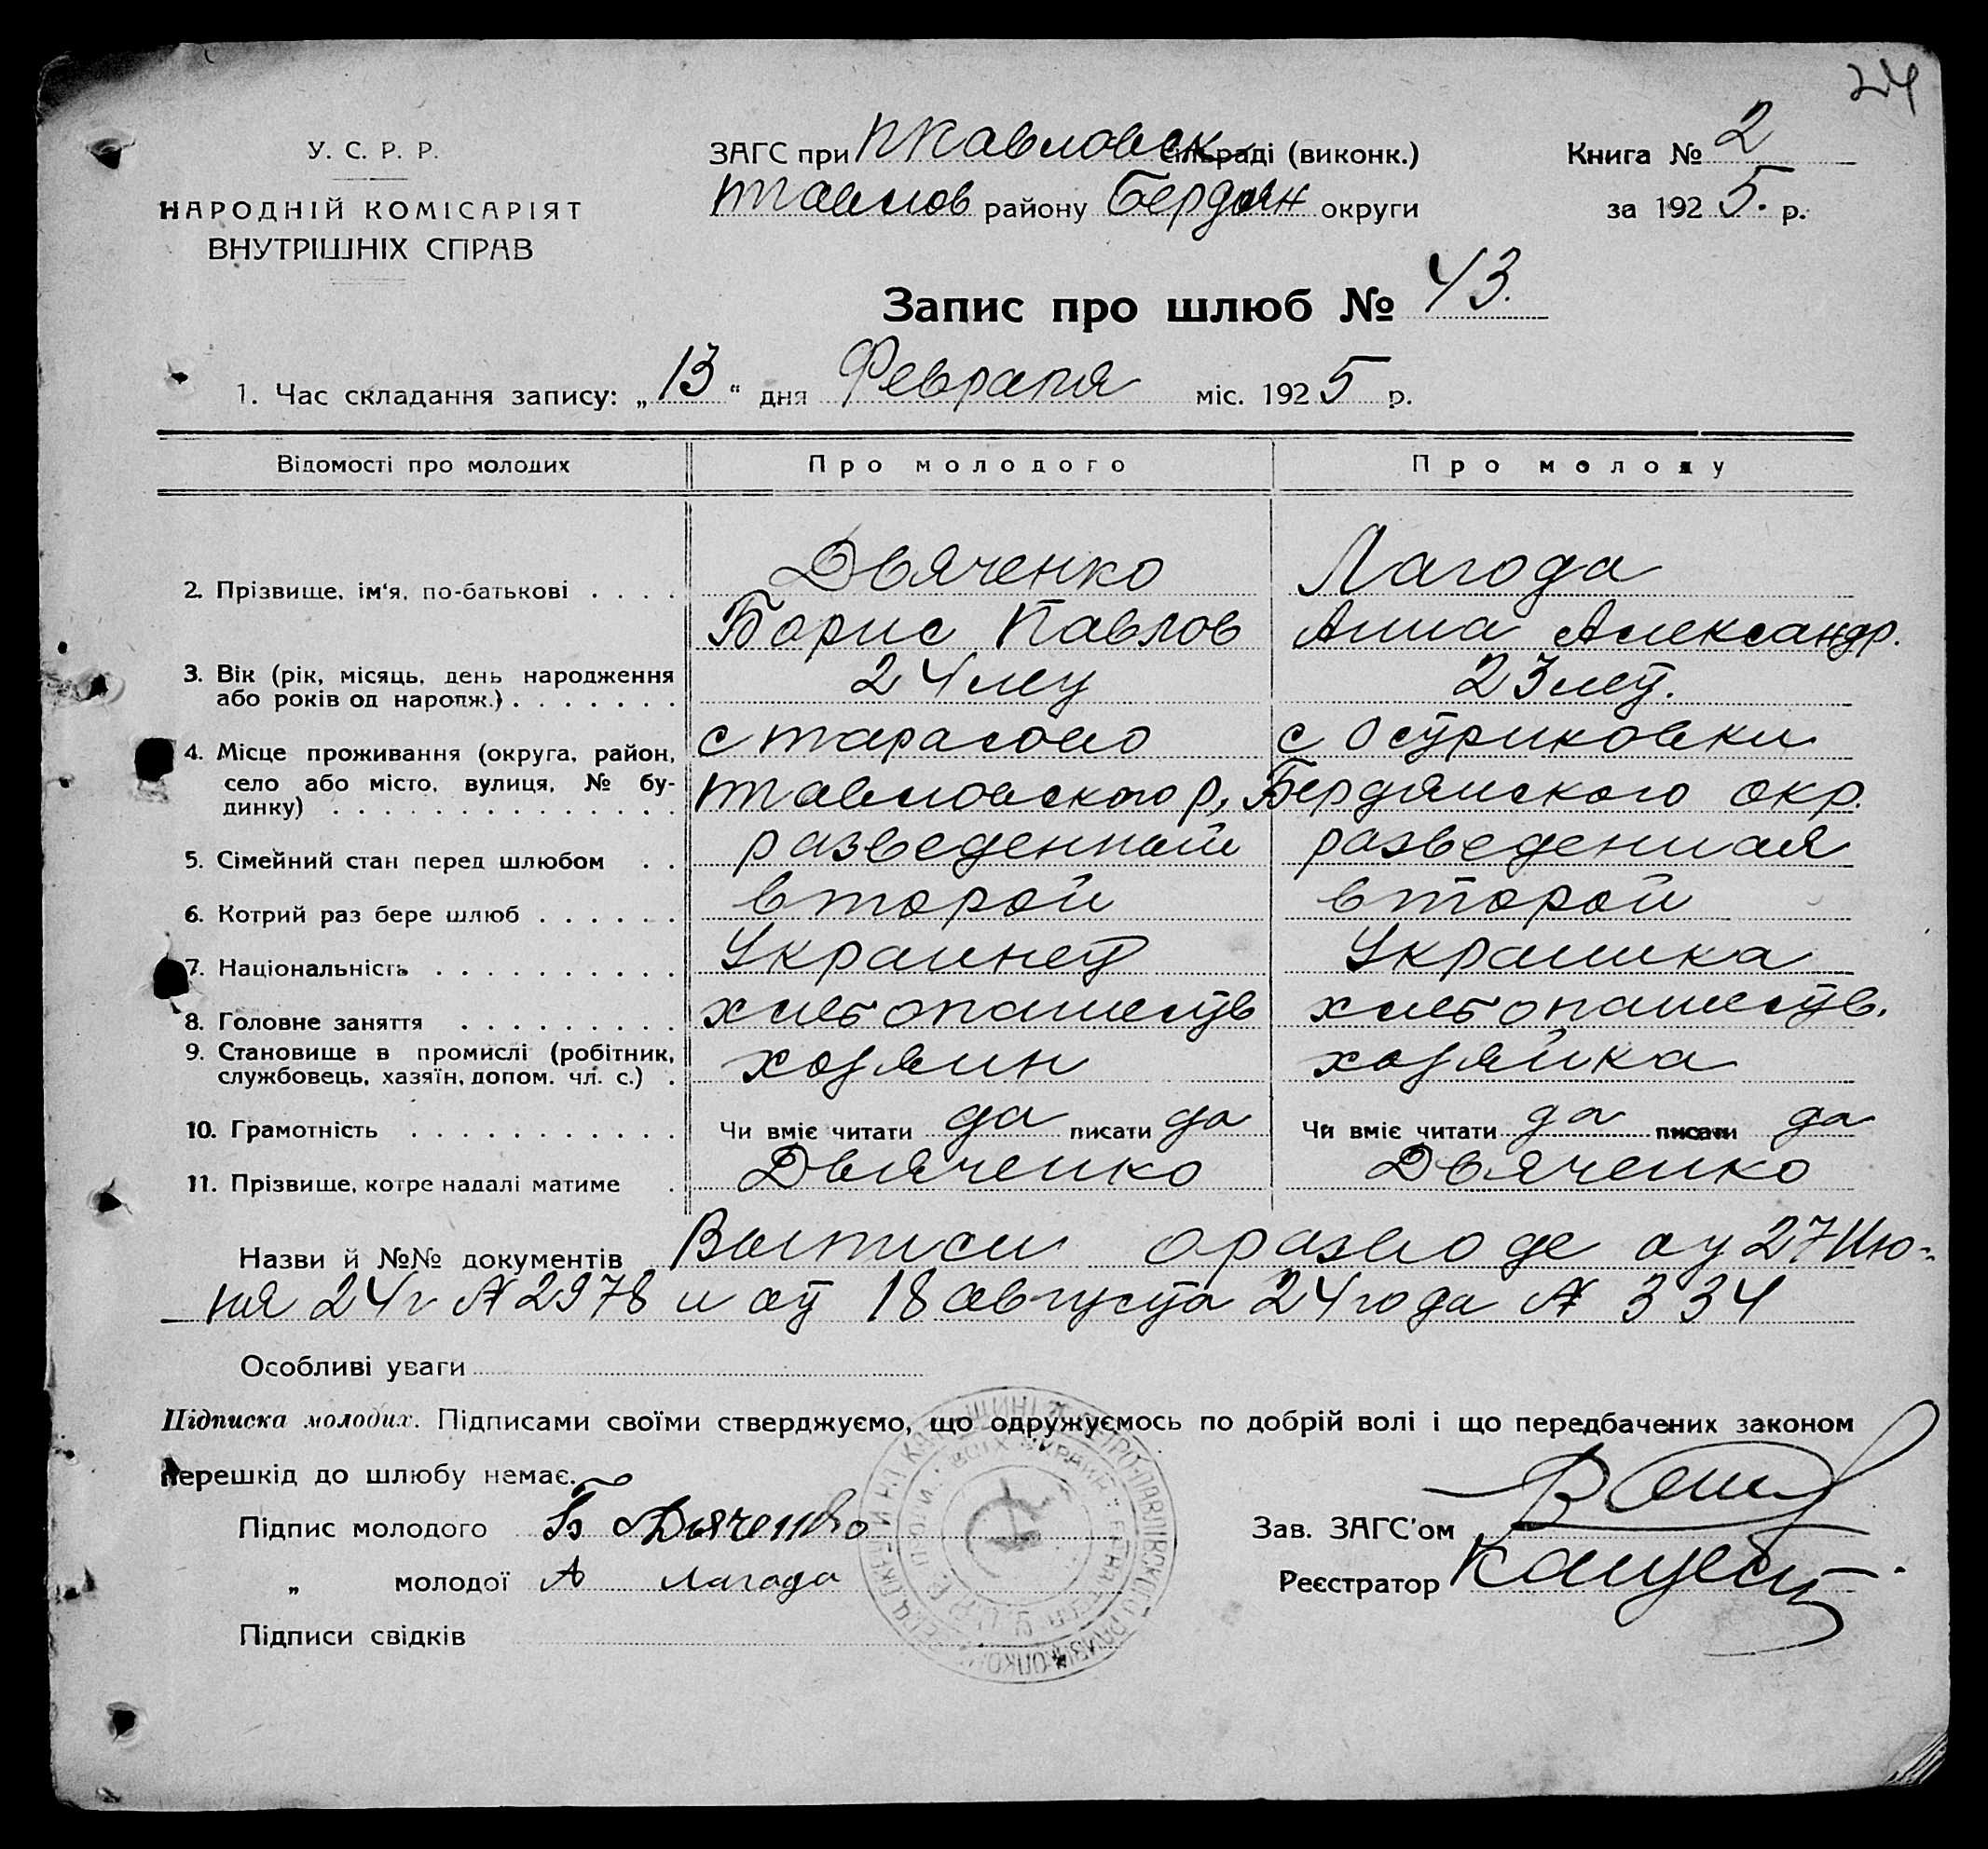 24
У. С. Р. Р.
НАРОДНІЙ КОМІСАРІЯТ
ВНУТРІШНІХ СПРАВ
ЗАГС при сільраді (виконк.)
району Бердян округи
Книга № 2
за 1925. р.
Запис про шлюб № 43.
1. Час складання запису: „ 13 “ дня Февраля міс. 1925 р.
Відомості про молодих Про молодого Про молоду
2. Прізвище, ім'я, по-батькові . . . . Дьяченко Лагода
Борис Павлов Анна Александр.
3. Вік (рік, місяць, день народження
або років од народж.) . . . . . . . 24 лет 23 лет.
4. Місце проживання (округа, район, с с Остриковки
село або місто, вулиця, № бу-
динку) . . . . . . . . . . . . . . р, Бердянского окр.
5. Сімейний стан перед шлюбом . . разведенный разведенная
6. Котрий раз бере шлюб . . . . . . второй второй
7. Національність . . . . . . . . . . Украинец Украинка
8. Головне заняття . . . . . . . . . хлебопашеств хлебопашеств.
9. Становище в промислі (робітник,
службовець, хазяїн, допом. чл. с.) . хозяин хозяйка
10. Грамотність . . . . . . . . . . . Чи вміє читати да писати да Чи вміє читати да писати да
11. Прізвище, котре надалі матиме . Дьяченко Дьяченко
Назви й №№ документів Выписи о разводе от 27 Ию-
ня 24 г № 2978 и от 18 августа 24 года № 334
Особливі уваги
Підписка молодих. Підписами своїми стверджуємо, що одружуємось по добрій волі і що передбачених законом
перешкід до шлюбу немає.
Підпис молодого Б Дьяченко
Зав. ЗАГС'ом
„ молодої А Лагода
Реєстратор
Підписи свідків